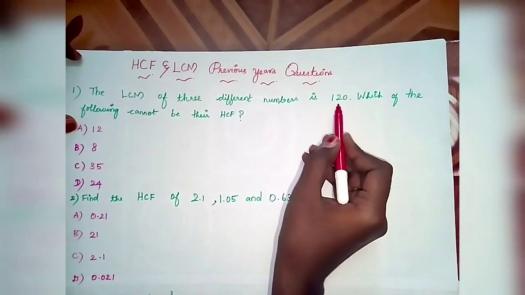 HCF & LCM Previous years Questions
1) The LCM of three different numbers is 120. Which of the
following cannot be their HCF?
A) 12
B) 8
C) 35
D) 24
2) Find the HCF of 2.1, 1.05 and 0.63
A) 0.21
B) 21
C) 2.1
D) 0.021